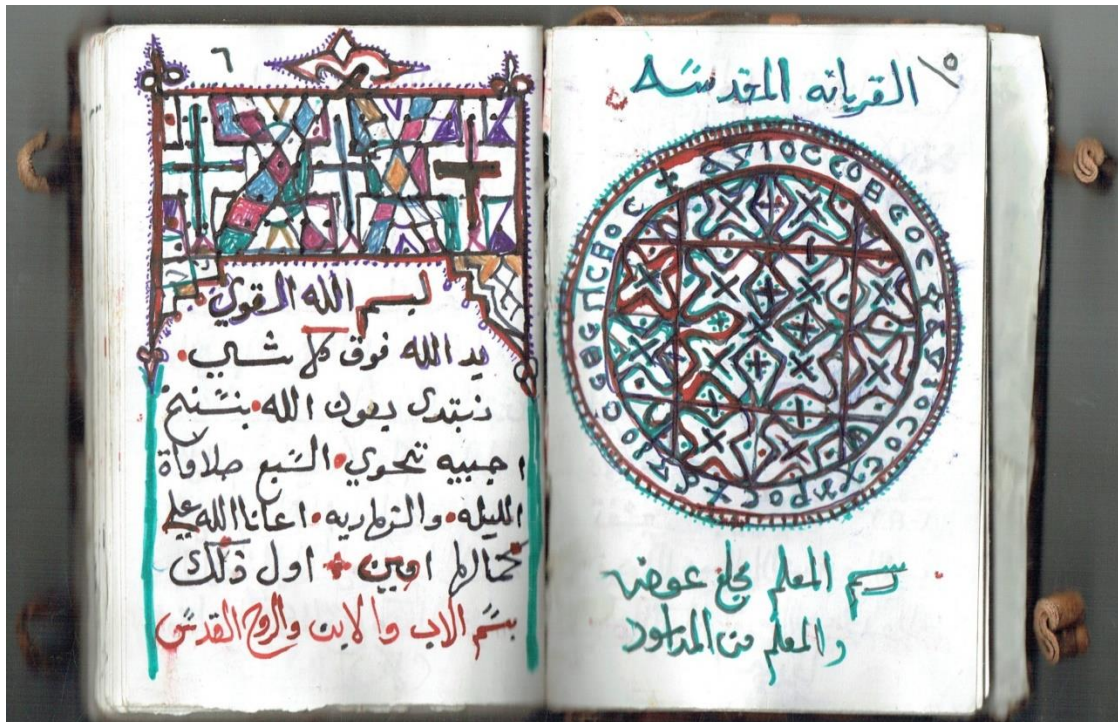 ٥
القربانه المقدسه
ⲁⲅⲓⲟⲥ ⲥⲟⲑⲉⲟⲥ ⲁⲅⲓⲟⲥ
رسم المعلم عوض
والمعلم من
٦
بسم الله القوي
يد الله فوق كل شي•
نبتدى بعون الله• بنسخ
اجبيه تحوي• السبع صلاواة
الليله• والنهاريه• اعانا الله علي
كمالها امين + اول ذلك
بسم الاب والابن والروح القدس